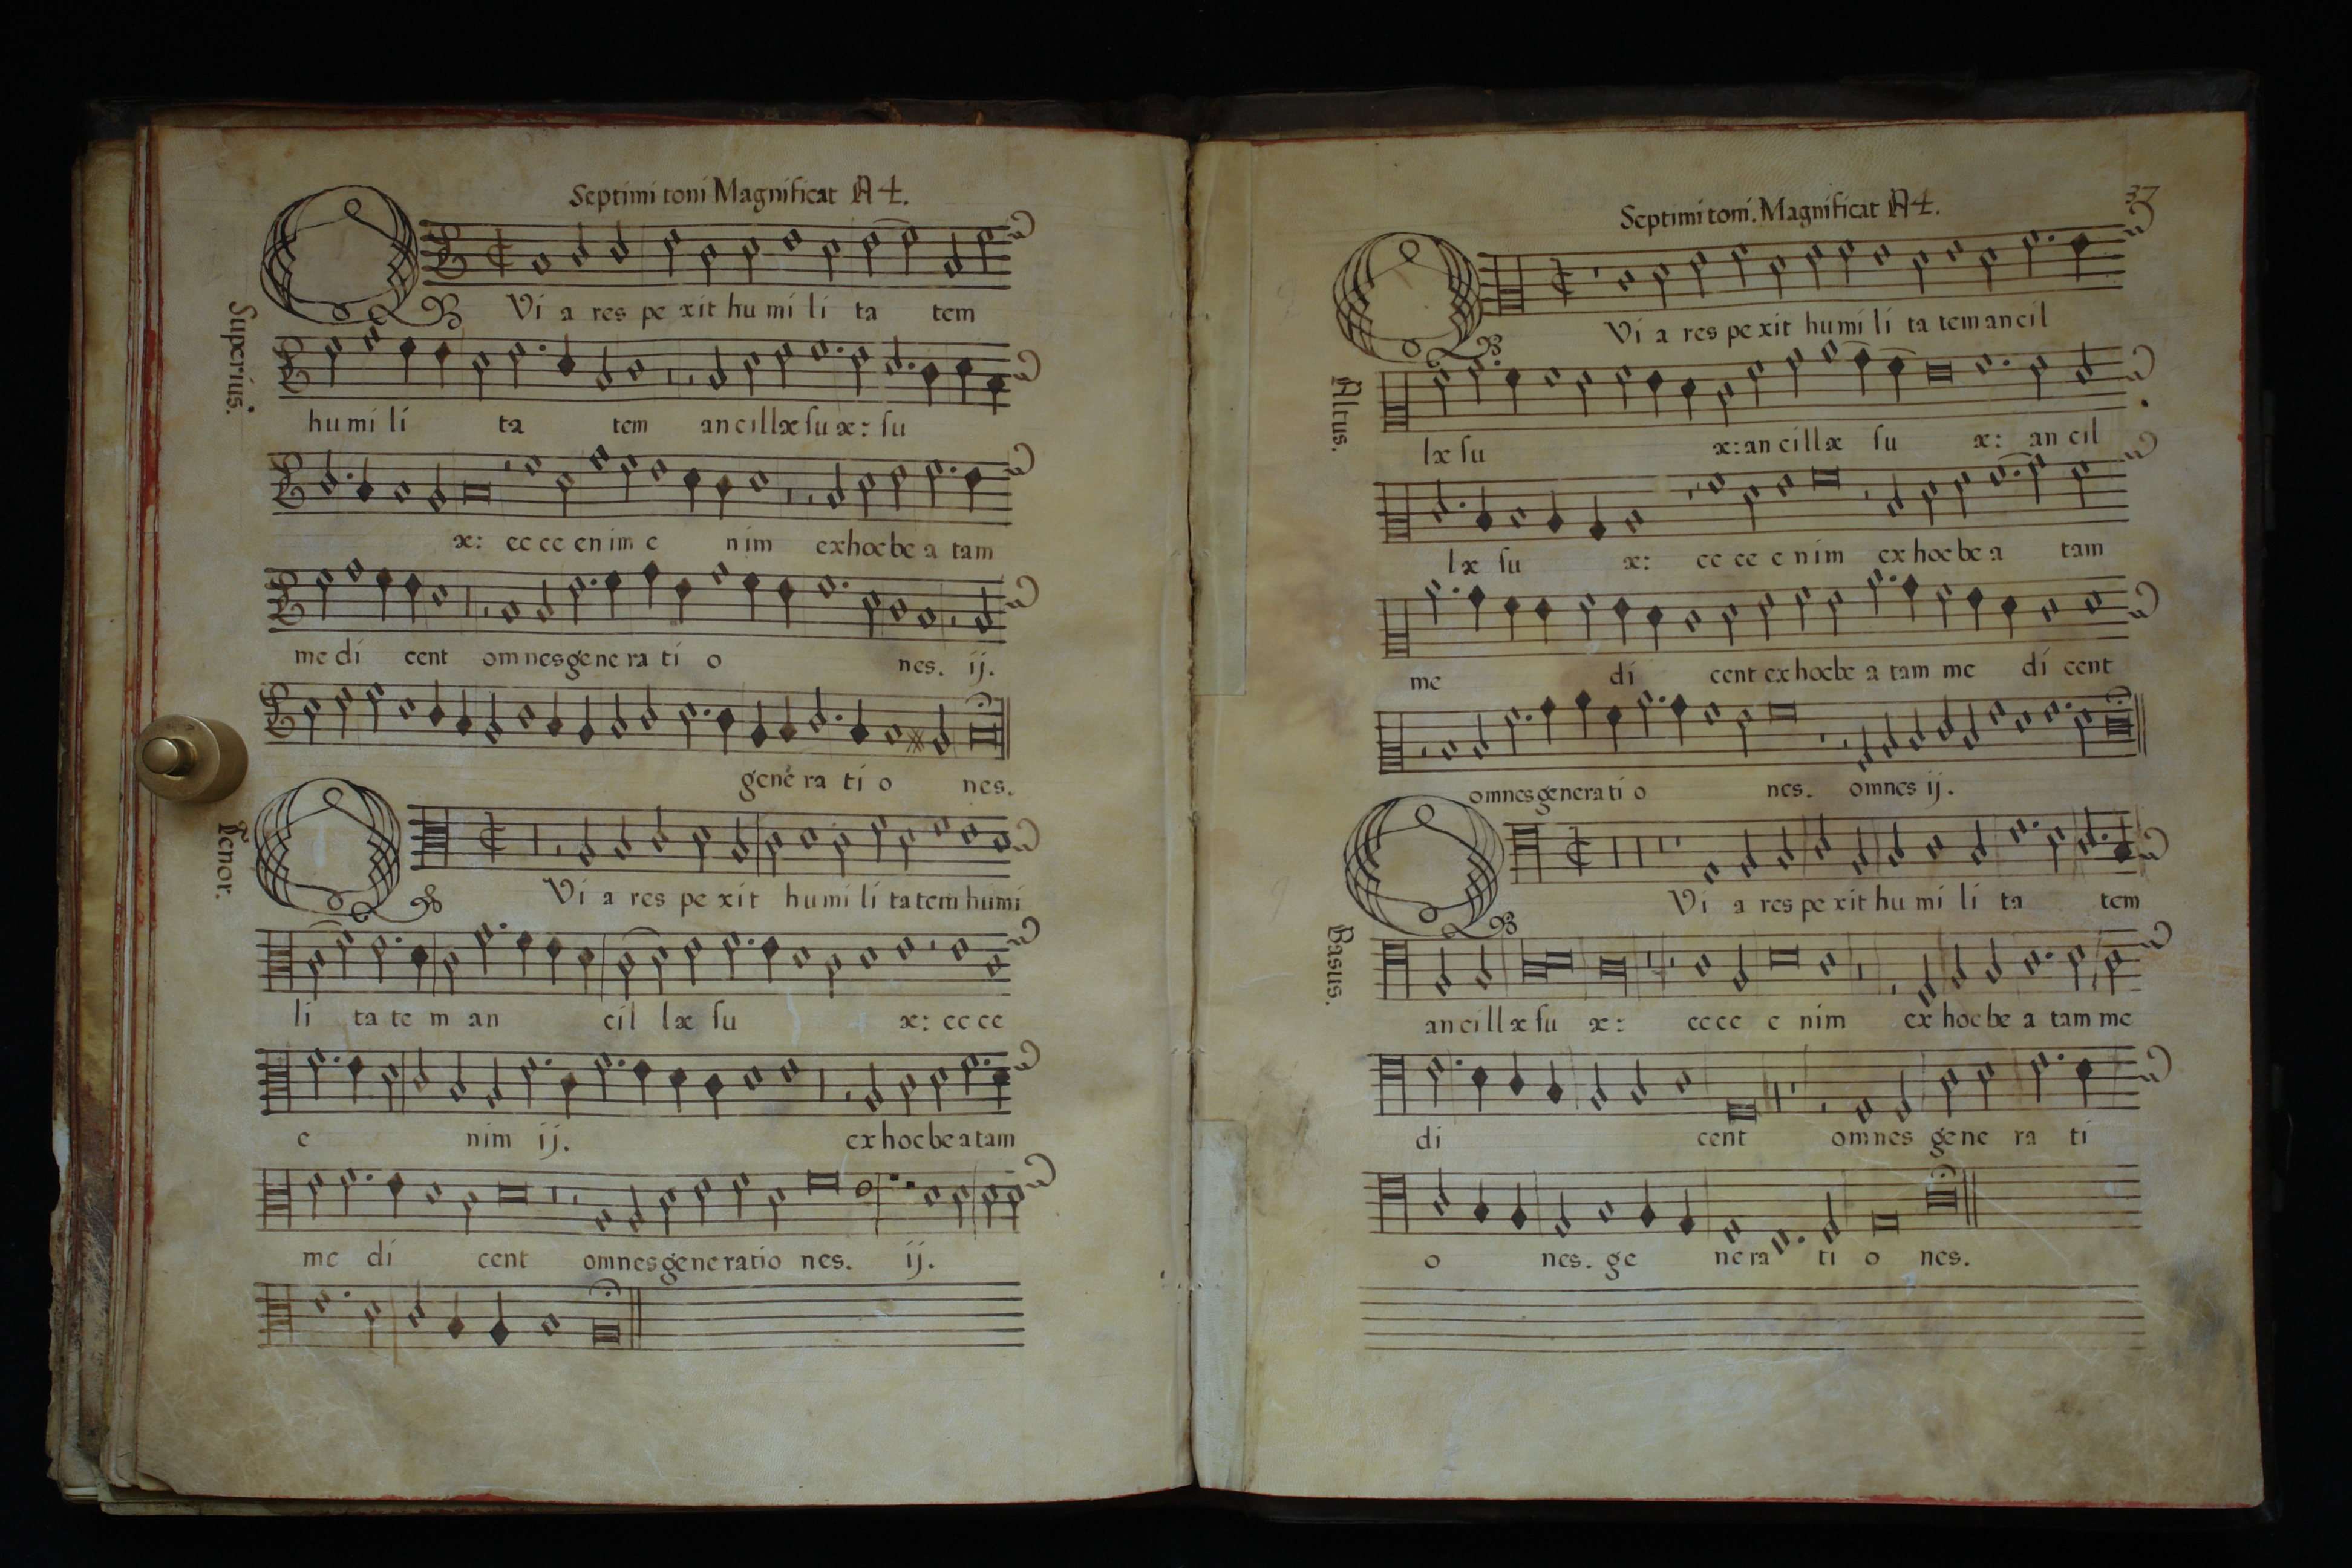 Septimi toni Magnificat A 4.
Superius.
QVi a res pe xit hu mi li ta tem
hu mi li ta tem an cil læ ſu æ: ſu
æ: ec ce en im e nim ex hoc be a tam
me di cent om nes ge ne ra ti o nes. ij.
gene ra ti o nes.
Tenor.
QVi a res pe xit hu mi li ta tem humi
li ta te m an cil læ ſu æ: ec ce
e nim ij. ex hoc be a tam
me di cent omnes ge ne ratio nes. ij.
Septimi toni. Magnificat A 4.
37
Altus.
QVi a res pe xit hu mi li ta tem an cil
læ ſu æ: an cil læ ſu æ: an cil
læ ſu æ: ec ce e nim ex hoc be a tam
me di cent ex hoc be a tam me di cent
omnes genera ti o nes. omnes ij.
Basus.
QVi a res pe xit hu mi li ta tem
an cil læ ſu æ: ec ce e nim ex hoc be a tam me
di cent omnes ge ne ra ti
o nes. ge ne ra ti o nes.